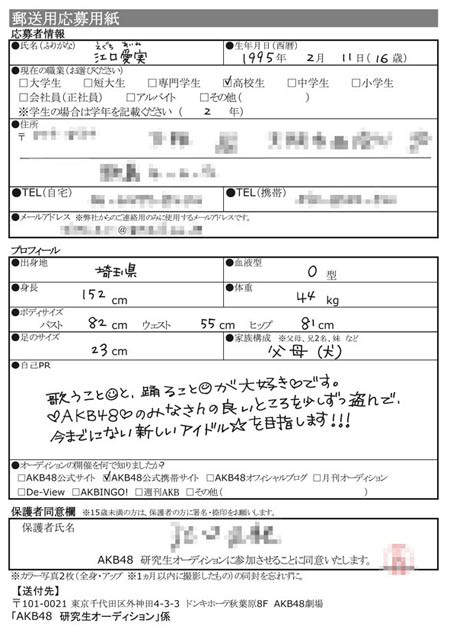 郵送用応募用紙
応募者情報
●氏名(ふりがな) えぐち あいみ 江口愛実
●生年月日(西暦) 1995年 2月 11日(16歳)
●現在の職業(お選びください)
□大学生 □短大生 □専門学生 ☑高校生 □中学生 □小学生
□会社員(正社員) □アルバイト □その他( )
※学生の場合は学年を記載ください( 2 年)
●住所
〒
●TEL(自宅) ●TEL(携帯)
●メールアドレス ※弊社からのご連絡用のみに使用するメールアドレスです。
@
プロフィール
●出身地 埼玉県 ●血液型 O 型
●身長 152 cm ●体重 44 kg
●ボディサイズ
バスト 82 cm ウェスト 55 cm ヒップ 81 cm
●足のサイズ 23 cm ●家族構成 ※父母、兄2名、妹 など 父母(犬)
●自己PR
歌うこと☺と、踊ること☺が大好き♡です。
♡AKB48♡のみなさんの良いところを少しずつ盗んで、
今までにない新しいアイドル☆を目指します!!!
●オーディションの開催を何で知りましたか?
□AKB48公式サイト ☑AKB48公式携帯サイト □AKB48オフィシャルブログ □月刊オーディション
□De-View □AKBINGO! □週刊AKB □その他( )
保護者同意欄 ※15歳未満の方は、保護者の方に署名・捺印をお願いします。
保護者氏名
AKB48 研究生オーディションに参加させることに同意いたします。
※カラー写真2枚(全身・アップ ※1ヵ月以内に撮影したもの)の同封を忘れずに。
【送付先】
〒101-0021 東京千代田区外神田4-3-3 ドンキホーテ秋葉原8F AKB48劇場
「AKB48 研究生オーディション」係